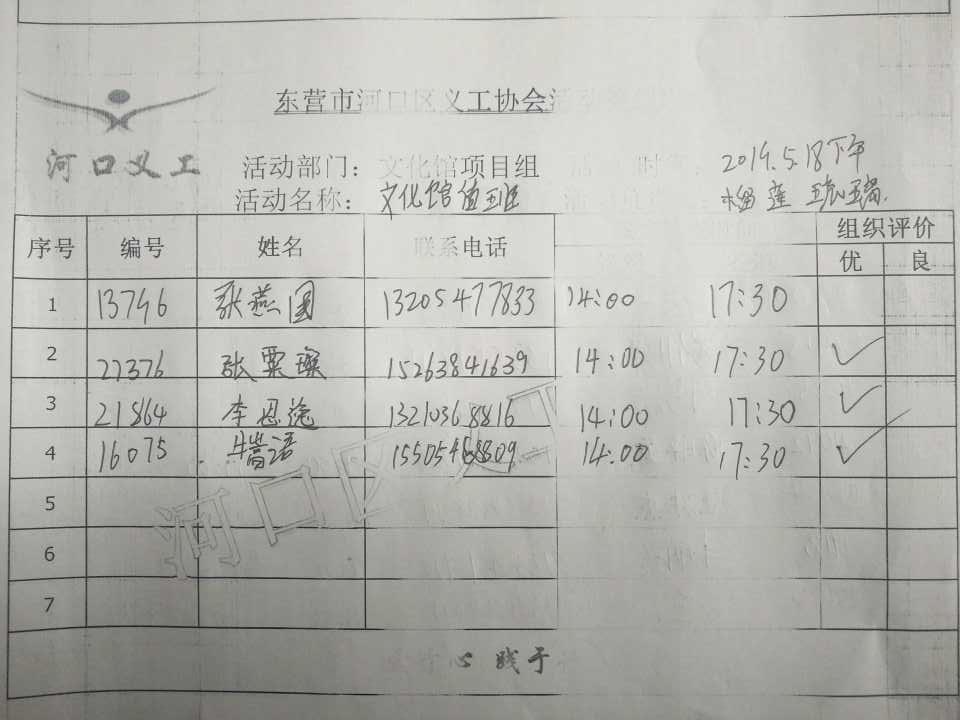 东营市河口区义工协会活动
河口义工
活动部门: 文化馆项目组 2019.5.18下午
活动名称: 文化馆值班
序号 编号 姓名 联系电话 组织评价
优 良
1 13746 张燕国 13205477833 14:00 17:30
2 22376 张粟璨 15263841639 14:00 17:30 ✓
3 21864 李恩逸 13210368816 14:00 17:30 ✓
4 16075 15505468809 14:00 17:30 ✓
5
6
7
河口区义工
心 践于